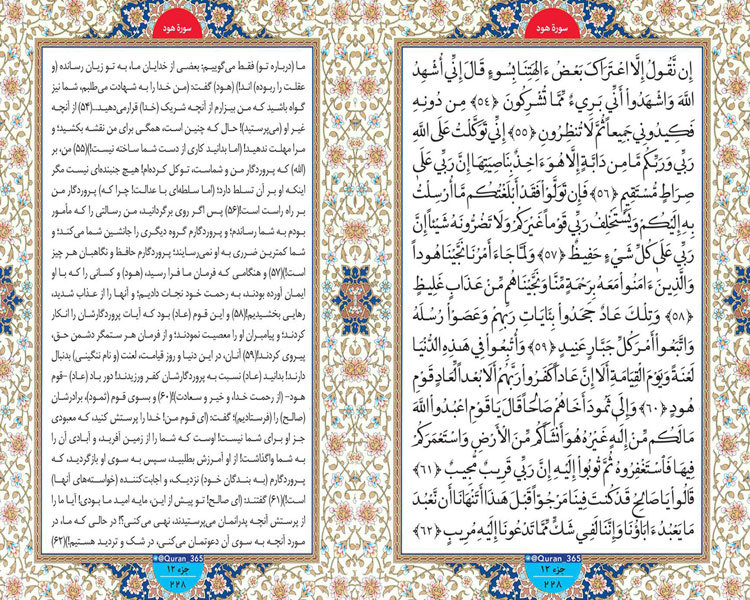 سورهٔ هود
إِن نَّقُولُ إِلَّا اعْتَرَاكَ بَعْضُ ءَالِهَتِنَا بِسُوءٍ قَالَ إِنِّي أُشْهِدُ
اللَّهَ وَاشْهَدُوا أَنِّي بَرِيءٌ مِّمَّا تُشْرِكُونَ ﴿٥٤﴾ مِن دُونِهِ
فَكِيدُونِي جَمِيعًا ثُمَّ لَا تُنظِرُونِ ﴿٥٥﴾ إِنِّي تَوَكَّلْتُ عَلَى اللَّهِ
رَبِّي وَرَبِّكُم مَّا مِن دَابَّةٍ إِلَّا هُوَ ءَاخِذٌ بِنَاصِيَتِهَا إِنَّ رَبِّي عَلَى
صِرَاطٍ مُّسْتَقِيمٍ ﴿٥٦﴾ فَإِن تَوَلَّوْا فَقَدْ أَبْلَغْتُكُم مَّا أُرْسِلْتُ
بِهِ إِلَيْكُمْ وَيَسْتَخْلِفُ رَبِّي قَوْمًا غَيْرَكُمْ وَلَا تَضُرُّونَهُ شَيْئًا إِنَّ
رَبِّي عَلَى كُلِّ شَيْءٍ حَفِيظٌ ﴿٥٧﴾ وَلَمَّا جَاءَ أَمْرُنَا نَجَّيْنَا هُودًا
وَالَّذِينَ ءَامَنُوا مَعَهُ بِرَحْمَةٍ مِّنَّا وَنَجَّيْنَاهُم مِّنْ عَذَابٍ غَلِيظٍ
﴿٥٨﴾ وَتِلْكَ عَادٌ جَحَدُوا بِـَٔايَاتِ رَبِّهِمْ وَعَصَوْا رُسُلَهُ
وَاتَّبَعُوا أَمْرَ كُلِّ جَبَّارٍ عَنِيدٍ ﴿٥٩﴾ وَأُتْبِعُوا فِي هَذِهِ الدُّنْيَا
لَعْنَةً وَيَوْمَ الْقِيَامَةِ أَلَا إِنَّ عَادًا كَفَرُوا رَبَّهُمْ أَلَا بُعْدًا لِّعَادٍ قَوْمِ
هُودٍ ﴿٦٠﴾ وَإِلَى ثَمُودَ أَخَاهُمْ صَالِحًا قَالَ يَا قَوْمِ اعْبُدُوا اللَّهَ
مَا لَكُم مِّنْ إِلَهٍ غَيْرُهُ هُوَ أَنشَأَكُم مِّنَ الْأَرْضِ وَاسْتَعْمَرَكُمْ
فِيهَا فَاسْتَغْفِرُوهُ ثُمَّ تُوبُوا إِلَيْهِ إِنَّ رَبِّي قَرِيبٌ مُّجِيبٌ ﴿٦١﴾
قَالُوا يَا صَالِحُ قَدْ كُنتَ فِينَا مَرْجُوًّا قَبْلَ هَذَا أَتَنْهَانَا أَن نَّعْبُدَ
مَا يَعْبُدُ ءَابَاؤُنَا وَإِنَّنَا لَفِي شَكٍّ مِّمَّا تَدْعُونَا إِلَيْهِ مُرِيبٍ ﴿٦٢﴾
@Quran_365
جزء ١٢
٢٢٨
سورهٔ هود
ما (درباره تو) فقط می‌گوییم: بعضی از خدایان ما، به تو زیان رسانده (و
عقلت را ربوده) اند!» (هود) گفت: «من خدا را به شهادت می‌طلبم، شما نیز
گواه باشید که من بیزارم از آنچه شریک (خدا) قرارمی‌دهید...(۵۴) از آنچه
غیر او (می‌پرستید)! حال که چنین است، همگی برای من نقشه بکشید؛ و
مرا مهلت ندهید! (اما بدانید کاری از دست شما ساخته نیست!)(۵۵) من، بر
(الله) که پروردگار من و شماست، توکل کرده‌ام! هیچ جنبنده‌ای نیست مگر
اینکه او بر آن تسلط دارد؛ (اما سلطه‌ای با عدالت! چرا که) پروردگار من
بر راه راست است!(۵۶) پس اگر روی برگردانید، من رسالتی را که مأمور
بودم به شما رساندم؛ و پروردگارم گروه دیگری را جانشین شما می‌کند؛ و
شما کمترین ضرری به او نمی‌رسانید؛ پروردگارم حافظ و نگاهبان هر چیز
است!»(۵۷) و هنگامی که فرمان ما فرا رسید، (هود) و کسانی را که با او
ایمان آورده بودند، به رحمت خود نجات دادیم؛ و آنها را از عذاب شدید،
رهایی بخشیدیم!(۵۸) و این قوم (عاد) بود که آیات پروردگارشان را انکار
کردند؛ و پیامبران او را معصیت نمودند؛ و از فرمان هر ستمگر دشمن حق،
پیروی کردند!(۵۹) آنان، در این دنیا و روز قیامت، لعنت (و نام ننگینی) بدنبال
دارند! بدانید (عاد) نسبت به پروردگارشان کفر ورزیدند! دور باد (عاد) -قوم
هود- (از رحمت خدا، و خیر و سعادت)!(۶۰) و بسوی قوم (ثمود)، برادرشان
(صالح) را (فرستادیم)؛ گفت: «ای قوم من! خدا را پرستش کنید، که معبودی
جز او برای شما نیست! اوست که شما را از زمین آفرید، و آبادی آن را
به شما واگذاشت! از او آمرزش بطلبید، سپس به سوی او بازگردید، که
پروردگارم (به بندگان خود) نزدیک، و اجابت‌کننده (خواسته‌های آنها)
است!»(۶۱) گفتند: «ای صالح! تو پیش از این، مایه امید ما بودی! آیا ما را
از پرستش آنچه پدرانمان می‌پرستیدند، نهی می‌کنی؟! در حالی که ما، در
مورد آنچه به سوی آن دعوتمان می‌کنی، در شک و تردید هستیم!»(۶۲)
@Quran_365
جزء ١٢
٢٢٨